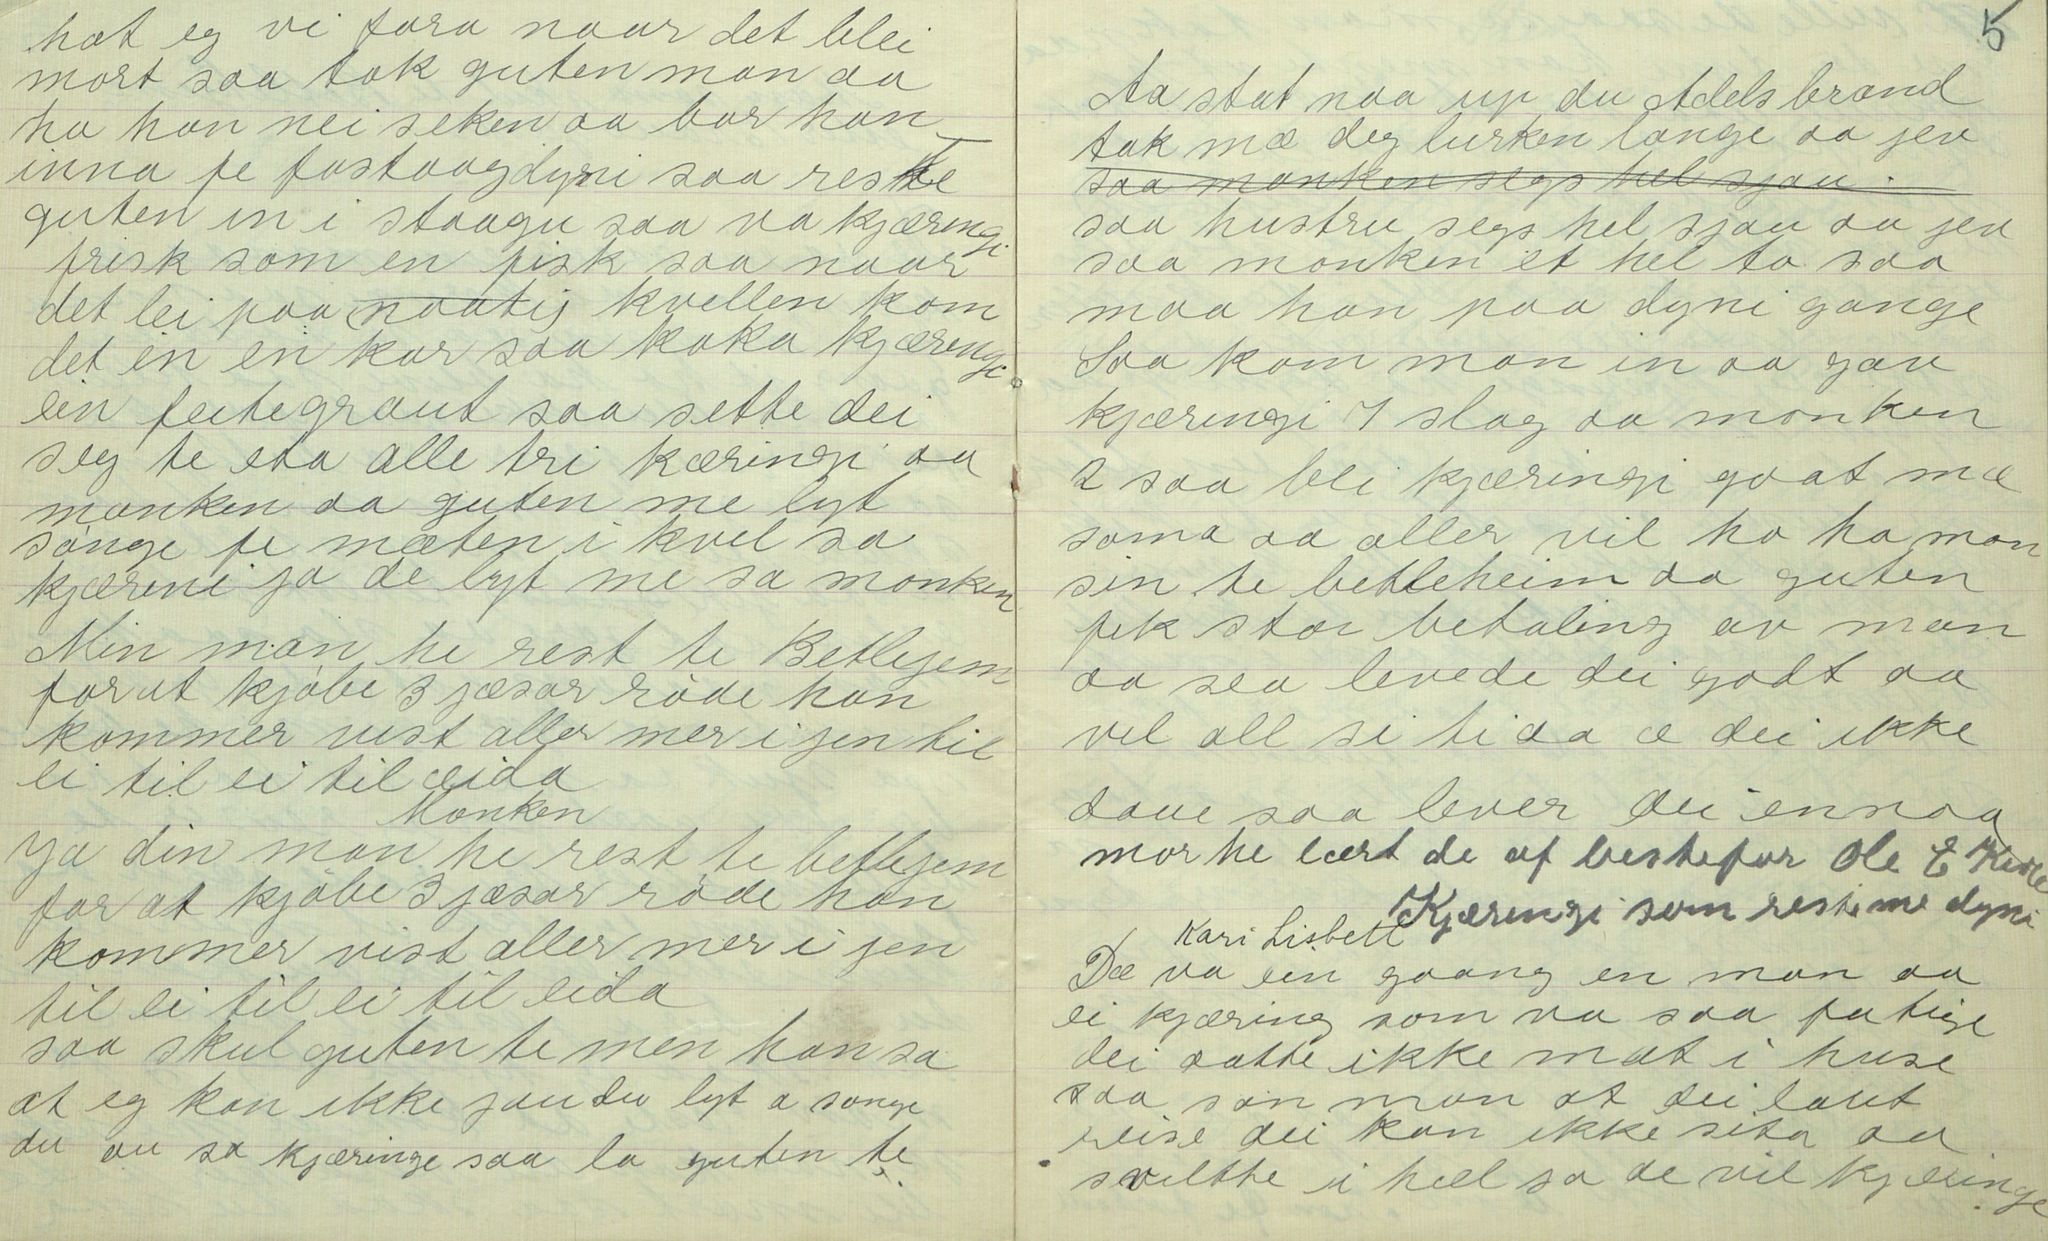 hat eg vi fara naar det blei
mort saa tok guten man aa
ha han nei seken aa bar han
inna fe fastaagdyni saa reste
guten in i staagu saa va kjæringi
frisk som en fisk saa naar
det lei paa naatig kvellen kom
det en en kar saa koka kjæringi
ein feitegraut saa sette dei
seg te eta alle tri kæringi aa
manken aa guten me lyt
sånge fe mæten i kvel sa
kjæreni ja de lyt me sa monken
Min man he rest te Betlejem
for at kjöbe 3 jæsar röde han
kommer vist aller mer i jen til
ei til ei til æida
Monken
Ja din man he rest te betlejem
for at kjöbe 3 jæsar röde han
kommer vist aller mer i jen
til ei til ei til eida
saa skul guten te men han sa
at eg kan ikke jau du lyt a sange
du au sa kjæringe saa la guten te
5
Aa stat naa up du Adelsbrand
tak mæ deg lurken lange aa jev
saa monken segs hel sjau.
saa hustru segs hel sjau aa jev
saa monken et hel to saa
maa han paa dyni gange
Saa kom man in aa gav
kjæringi 7 slag aa monken
2 saa blei kjæringi goat mæ
soma aa aller vil ho ha man
sin te betleheim aa guten
fek stor betaling av man
aa sea levede dei godt aa
vel all si ti aa æ dei ikke
daue saa lever dei ennaa
mor he lært de af bestefar Ole E
Kjæringi som reste me dyni
Kari Lisbett
Dæ va ein gaang en man aa
ei kjæring som va saa fatige
dei aatte ikke mat i huse
saa san man at dei laut
reise dei kan ikke sita aa
svelthe i hæl sa de vil kjæringe